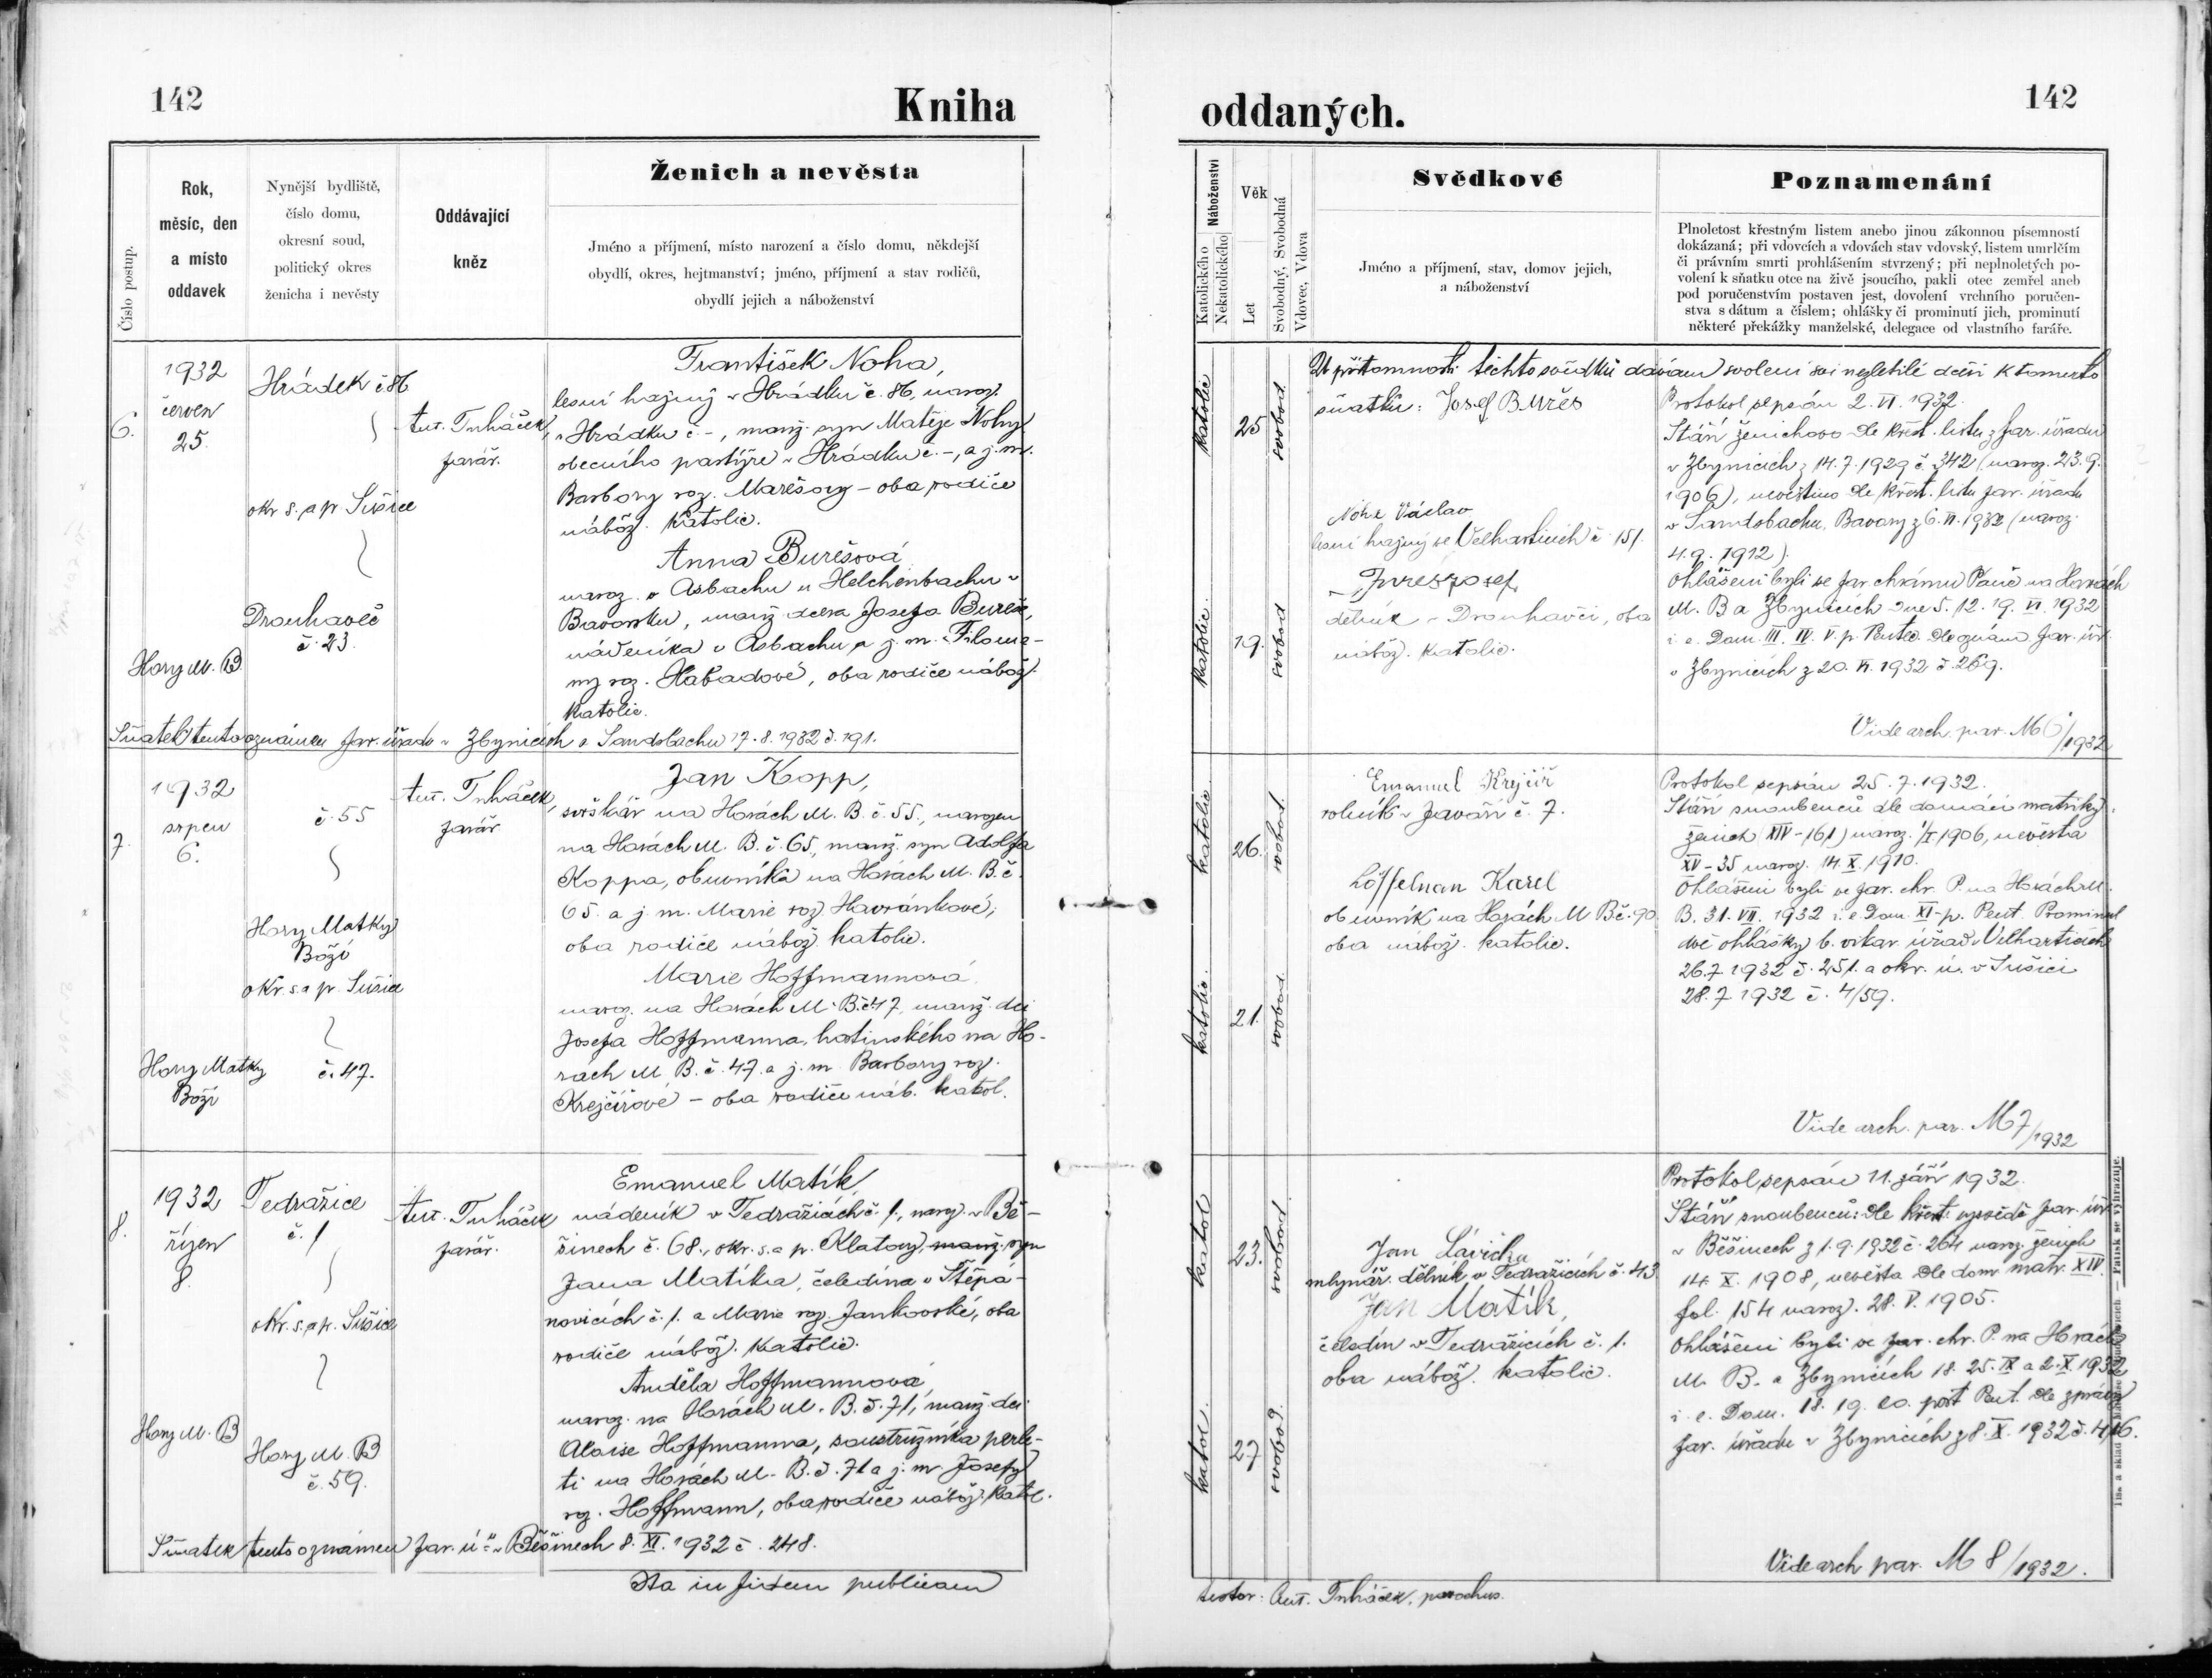 142
Kniha
oddaných.
142
Číslo postup.
Rok,
měsíc, den
a místo
oddavek
Nynější bydliště,
číslo domu,
okresní soud,
politický okres
ženicha i nevěsty
Oddávající
kněz
Ženich a nevěsta
Jméno a příjmení, místo narození a číslo domu, někdejší
obydlí, okres, hejtmanství; jméno, příjmení a stav rodičů,
obydlí jejich a náboženství
Náboženství
Katolického
Nekatolického
Věk
Let
Svobodný, Svobodná
Vdovec, Vdova
Svědkové
Jméno a příjmení, stav, domov jejich,
a náboženství
Poznamenání
Plnoletost křestným listem anebo jinou zákonnou písemností
dokázaná; při vdovcích a vdovách stav vdovský, listem umrlčím
či právním smrti prohlášením stvrzený; při neplnoletých po-
volení k sňatku otce na živě jsoucího, pakli otec zemřel aneb
pod poručenstvím postaven jest, dovolení vrchního poručen-
stva s dátum a číslem; ohlášky či prominutí jich, prominutí
některé překážky manželské, delegace od vlastního faráře.
6.
1932
červen
25.
Hory M. B
Hrádek č 86
okr s. a p Sušice
Drouhaveč
č. 23.
Ant. Truháček,
farář.
František Noha,
lesní hajný v Hrádku č. 86, naroz.
v Hrádku č -, manž. syn Matěje Nohy
obecního pastýře v Hrádku č. -, a j. m.
Barbory roz. Marešovy - oba rodiče
nábož. katolic.
Anna Burešová
naroz. v Asbachu u Helchenbachu v
Bavorsku, manž dcera Josefa Bureše,
nádeníka v Asbachu a j. m. Filome-
ny roz. Habadové, oba rodiče nábož.
katolic.
Sňatek tento oznámen far. úřadu v Zbynicích a Sandsbachu 17. 8. 1932 č. 191.
katolic
25
svobod
katolic.
19.
svobod
V přítomnosti těchto svědků dávám svolení své nezletilé dceři k tomuto
sňatku: Josef Bureš
Noha Václav
lesní hajný ve Velharticích č 151.
Jures Josef
dělník v Drouhavči, oba
nábož. katolic.
Protokol sepsán 2. VI. 1932.
Stáří ženichovo dle křest. listu far. úřadu
v Zbynicích z 14. 7. 1929 č 342 (naroz. 23. 9.
1906), nevěstino dle křest. listu far. úřadu
v Sandsbachu, Bavory z 6. VI. 1932 (naroz.
4. 9. 1912).
Ohlášeni byli ve far chrámu Páně na Horách
M. B a Zbynicích dne 5. 12. 19. VI. 1932
i. e. Dom. III. IV. V. p. Pentec. dle oznám far. úř.
v Zbynicích z 20. VI. 1932 č. 269.
Vide arch. par. M 6/1932
7.
1932
srpen
6.
Hory Matky
Boží
č. 55
Hory Matky
Boží
okr. s. a p. Sušice
č. 47.
Ant. Truháček,
farář
Jan Kopp,
švískář na Horách M. B. č. 55., narozen
na Horách M. B. č. 65, manž. syn Adolfa
Koppa, obuvníka na Horách M. B. č.
65. a j. m. Marie roz. Havránkové;
oba rodiče nábož. katolic.
Marie Hoffmannová
naroz. na Horách M. B. č 47, manž. dci
Josefa Hoffmanna, hostinského na Ho-
rách M. B. č. 47. a j. m. Barbory roz.
Krejčířové - oba rodiče náb. katol.
katolic.
26.
svobod.
katolic.
21.
svobod
Emanuel Krejčíř
rolník v Javoří č. 7.
Löffelman Karel
obuvník na Horách M B č. 90.
oba nábož. katolic.
Protokol sepsán 25. 7. 1932.
Stáří snoubenců dle domácí matriky.
ženich (XIV-161) naroz. 1/I 1906, nevěsta
XV-35 naroz. 14. X. 1910.
Ohlášeni byli ve far. chr. P. na Horách M.
B. 31. VII. 1932 i. e. Dom. XI. p. Pent. Prominul
dvě ohlášky b. vikar. úřad v Velharticích
26. 7 1932 č. 251. a okr. ú. v Sušici
28. 7 1932 č. 4/59.
Vide arch. par. M 7/1932
8.
1932
říjen
8
Hory M. B
Tedražice
č. 1
okr. s. a p. Sušice
Hory M. B
č. 59.
Ant. Truháček
farář.
Emanuel Matík
nádeník v Tedražicích č. 1., naroz. v Bě-
šinech č. 68., okr. s. a p. Klatovy, manž. syn
Jana Matíka, čeledína v Štěpá-
novicích č. 1. a Marie roz. Jankovské, oba
rodiče nábož. katolic.
Anděla Hoffmannová
naroz. na Horách M. B. č. 71, manž. dci
Aloise Hoffmanna, soustružníka perle-
ti na Horách M. B. č. 71 a j. m. Josefy
roz. Hoffmann, oba rodiče nábož. katol.
Sňatek tento oznámen far. úř. v Běšinech 8. XI. 1932 č. 248.
katol
23.
svobod
katol.
27
svobod.
Jan Lávička
mlynář. dělník v Tedražicích č. 43
Jan Matík,
čeledín v Tedražicích č. 1.
oba nábož. katolic.
Protokol sepsán 11. září 1932.
Stáří snoubenců: dle křest far. úř.
v Běšinech z 1. 9. 1932 č. 264 naroz. ženich
14. X. 1908, nevěsta dle dom matr. XIV.
fol. 154 naroz. 28. V. 1905.
Ohlášeni byli ve far. chr. P. na Horách
M. B. a Zbynicích 18. 25. IX a 2. X. 1932
i. e. Dom. 18. 19. 20. post Pent. dle zprávy
far. úřadu v Zbynicích z 8. X. 1932 č. 416.
Vide arch par. M 8/1932.
Ita in fidem publicam
testor: Ant. Truháček, parochus.
Patisk se vyhrazuje.